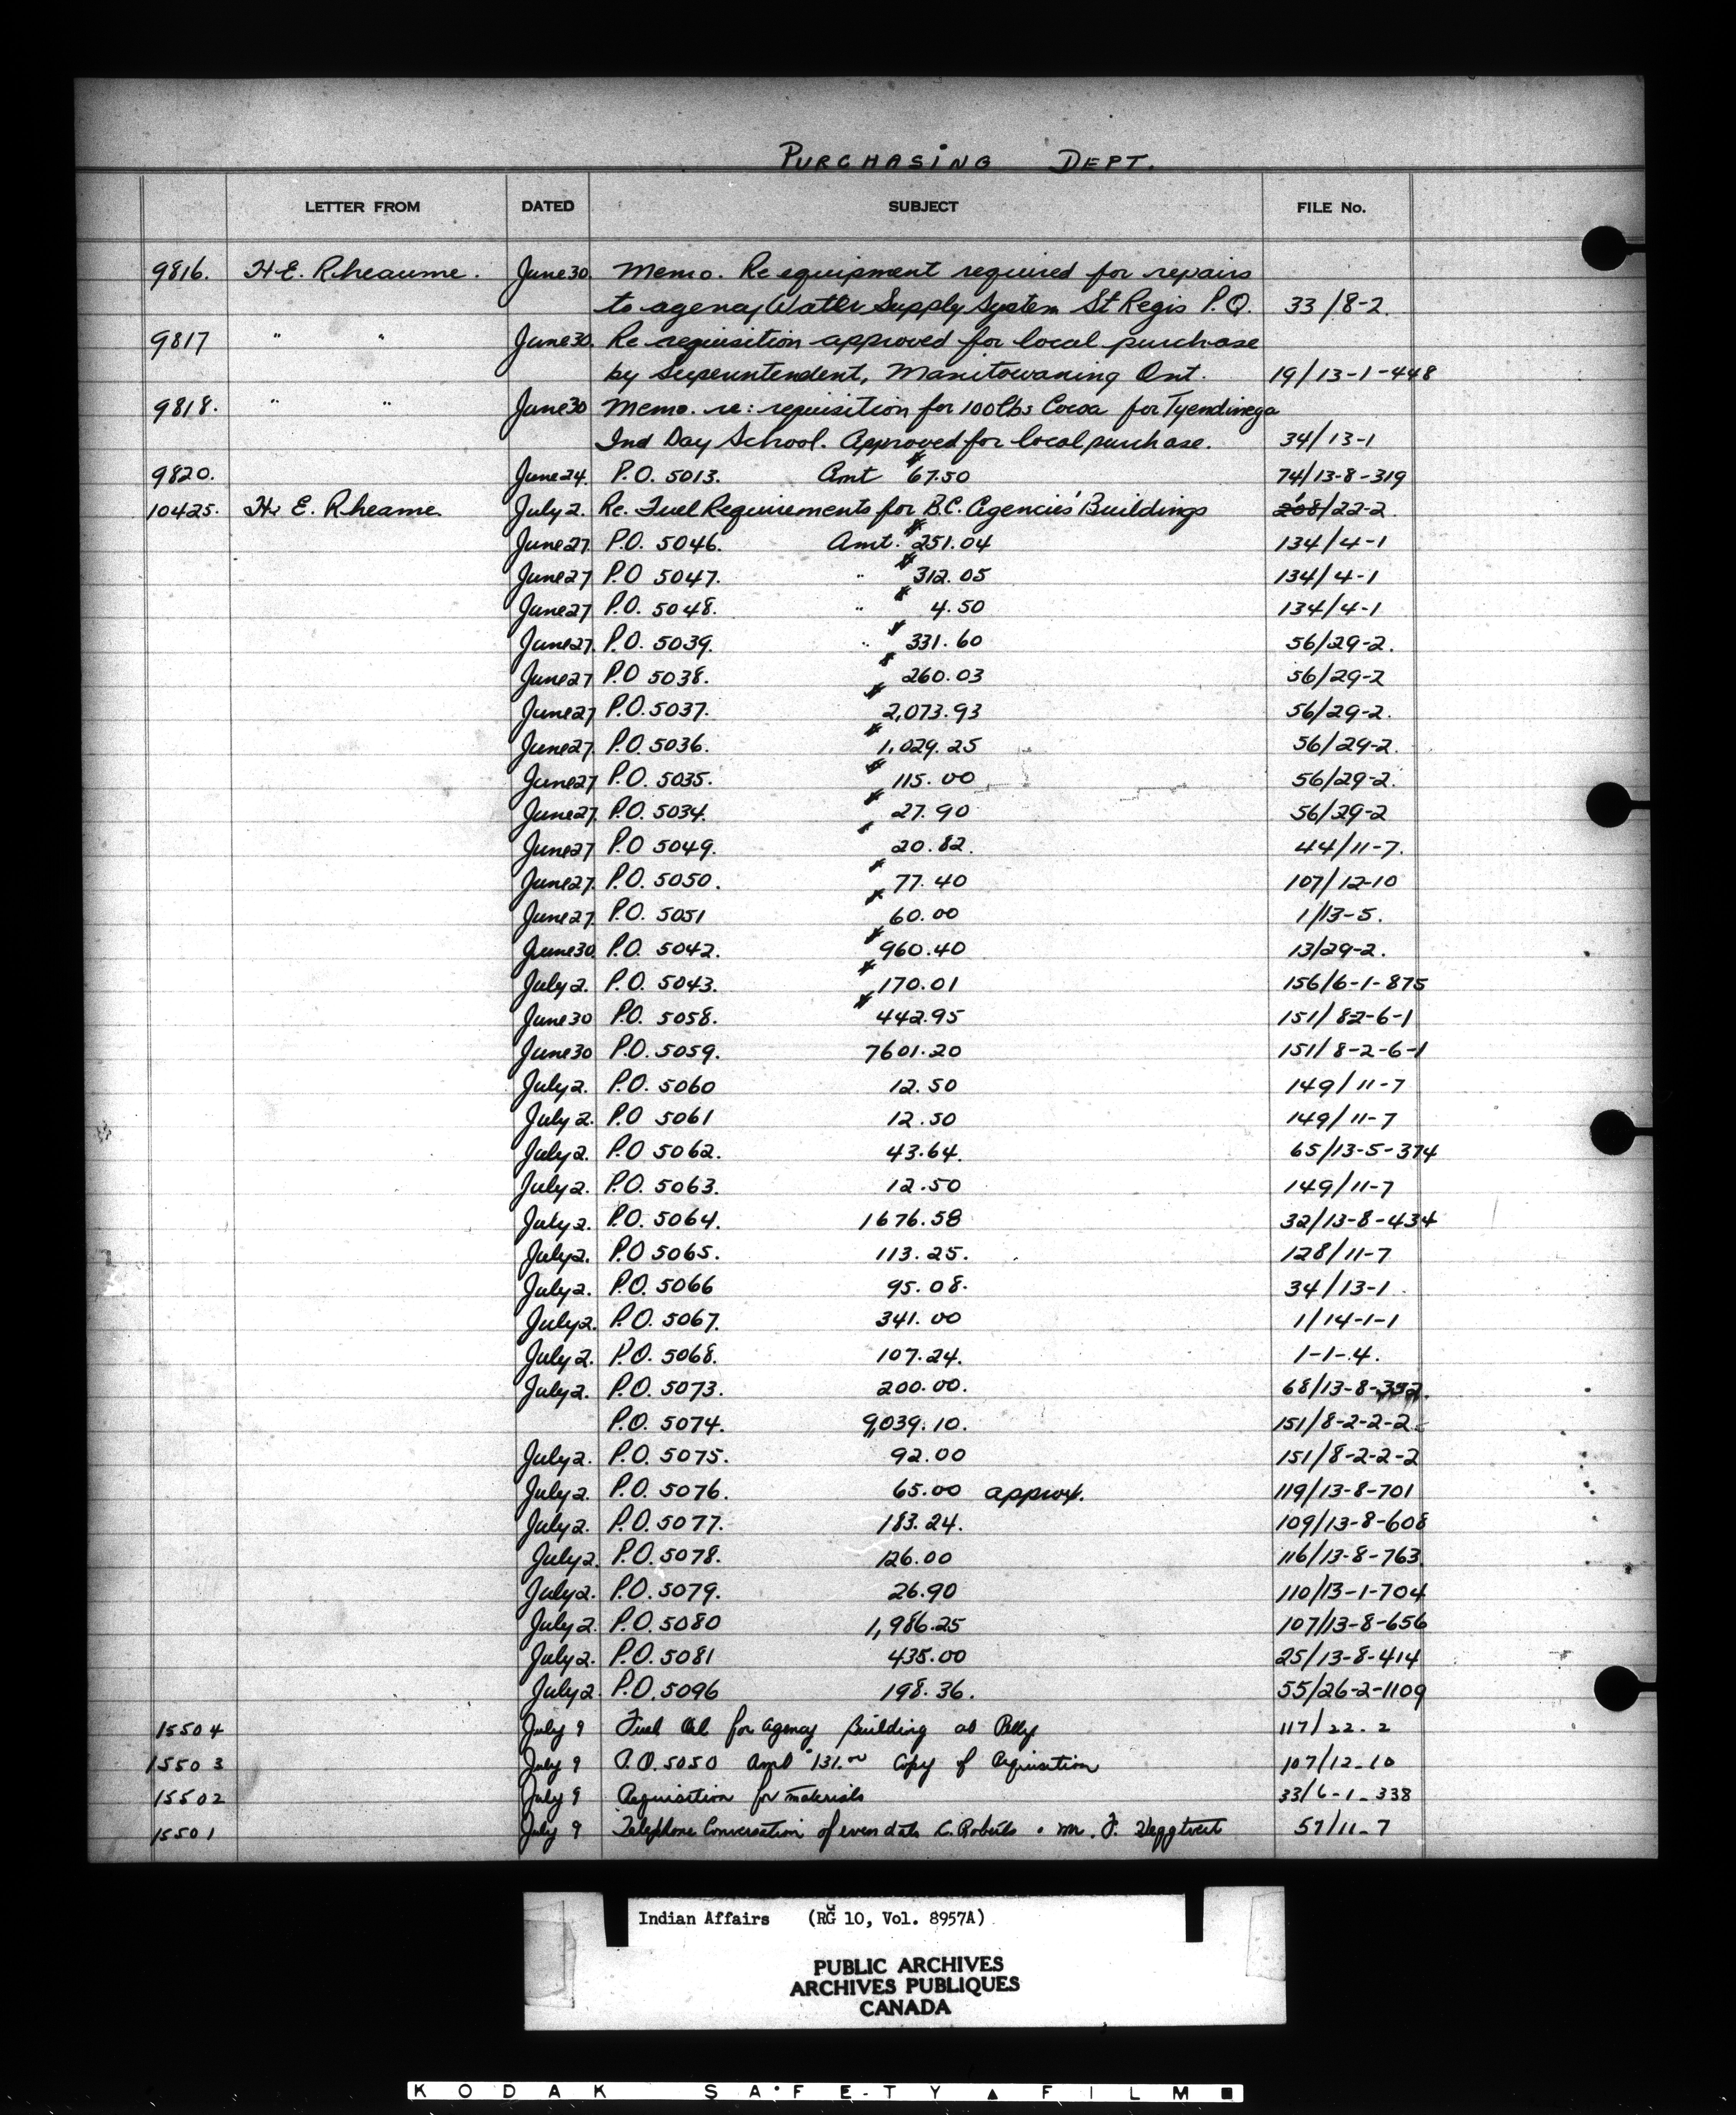 PURCHASING DEPT.
LETTER FROM DATED SUBJECT FILE No.
9816. H.E. Rheaume. June 30. Memo. Re equipment required for repairs
to agency Water Supply System St Regis P.Q. 33/8-2.
9817 " " June 30. Re requisition approved for local purchase
by Superintendent, Manitowaning Ont. 19/13-1-448
9818. " " June 30 Memo. re: requisition for 100 lbs Cocoa for Tyendinega
Ind Day School. Approved for local purchase. 34/13-1
9820. June 24. P.O. 5013. Amt $67.50 74/13-8-319
10425. H. E. Rheame. July 2. Re. Fuel Requirements for B.C. Agencies' Buildings 208/22-2.
June 27. P.O. 5046. Amt. $251.04 134/4-1
June 27 P.O 5047. " $312.05 134/4-1
June 27 P.O. 5048. " $4.50 134/4-1
June 27. P.O. 5039. " $331.60 56/29-2.
June 27 P.O 5038. $260.03 56/29-2
June 27 P.O. 5037. $2,073.93 56/29-2.
June 27. P.O. 5036. $1,029.25 56/29-2.
June 27 P.O. 5035. $115.00 56/29-2.
June 27. P.O. 5034. $27.90 56/29-2
June 27 P.O 5049. $20.82. 44/11-7.
June 27. P.O. 5050. $77.40 107/12-10
June 27. P.O. 5051 $60.00 1/13-5.
June 30. P.O. 5042. $960.40 13/29-2.
July 2. P.O. 5043. $170.01 156/6-1-875
June 30 P.O. 5058. $442.95 151/82-6-1
June 30 P.O. 5059. 7601.20 151/8-2-6-1
July 2. P.O. 5060 12.50 149/11-7
July 2. P.O 5061 12.50 149/11-7
July 2. P.O 5062. 43.64. 65/13-5-374
July 2. P.O. 5063. 12.50 149/11-7
July 2. P.O. 5064. 1676.58 32/13-8-434
July 2. P.O 5065. 113.25. 128/11-7
July 2. P.O. 5066 95.08. 34/13-1
July 2. P.O. 5067. 341.00 1/14-1-1
July 2. P.O. 5068. 107.24. 1-1-4.
July 2. P.O. 5073. 200.00. 68/13-8-392.
P.O. 5074. 9,039.10. 151/8-2-2-2
July 2. P.O. 5075. 92.00 151/8-2-2-2
July 2. P.O. 5076. 65.00 approx. 119/13-8-701
July 2. P.O. 5077. 183.24. 109/13-8-608
July 2. P.O. 5078. 126.00 116/13-8-763
July 2. P.O. 5079. 26.90 110/13-1-704
July 2. P.O. 5080 1,986.25 107/13-8-656
July 2. P.O. 5081 435.00 25/13-8-414
July 2. P.O. 5096 198.36. 55/26-2-1109
15504 July 9 Fuel Oil for Agency Building at Pelly 117/22.2
15503 July 9 P.O. 5050 Amt $131.00 Copy of Requisition 107/12-10
15502 July 9 Requisition for materials 33/6-1-338
15501 July 9 Telephone Conversation of even date C. Roberts . Mr. F. 57/11-7
Indian Affairs (RG 10, Vol. 8957A)
PUBLIC ARCHIVES
ARCHIVES PUBLIQUES
CANADA
KODAK SAFETY FILM